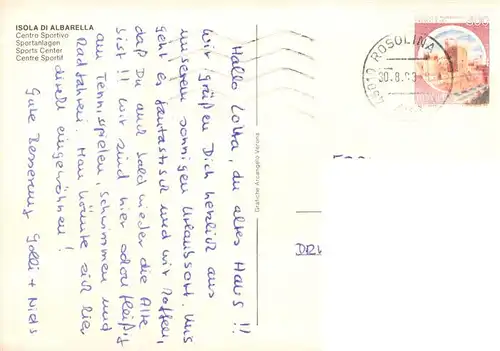 ISOLA DI ALBARELLA
Centro Sportivo
Sportanlagen
Sports Center
Centre Sportif
Hallo Lotha, du altes Haus!!
Wir grüßen Dich herzlich aus
unserem sonnigen Urlaubsort. Uns
geht es fantastisch und wir hoffen,
daß Du auch bald wieder die Alte
bist!! Wir sind hier schon fleißig
am Tennisspielen, Schwimmen und
Radfahren. Man könnte sich hier
direkt eingewöhnen!
Gute Besserung Golli + Niels
Grafiche Arcangelo Verona
45010 ROSOLINA
30.8.